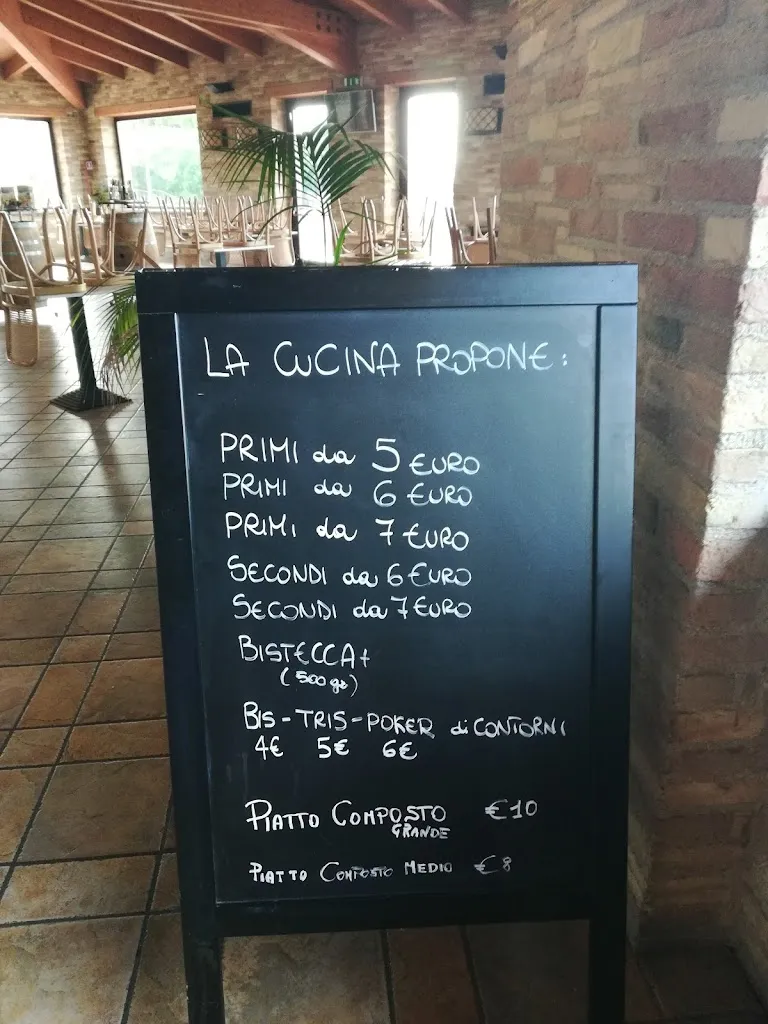 LA CUCINA PROPONE:
PRIMI da 5 EURO
PRIMI da 6 EURO
PRIMI da 7 EURO
SECONDI da 6 EURO
SECONDI da 7 EURO
BISTECCA+
(500gr)
BIS-TRIS-POKER di CONTORNI
4€ 5€ 6€
PIATTO COMPOSTO €10
GRANDE
PIATTO COMPOSTO MEDIO €8